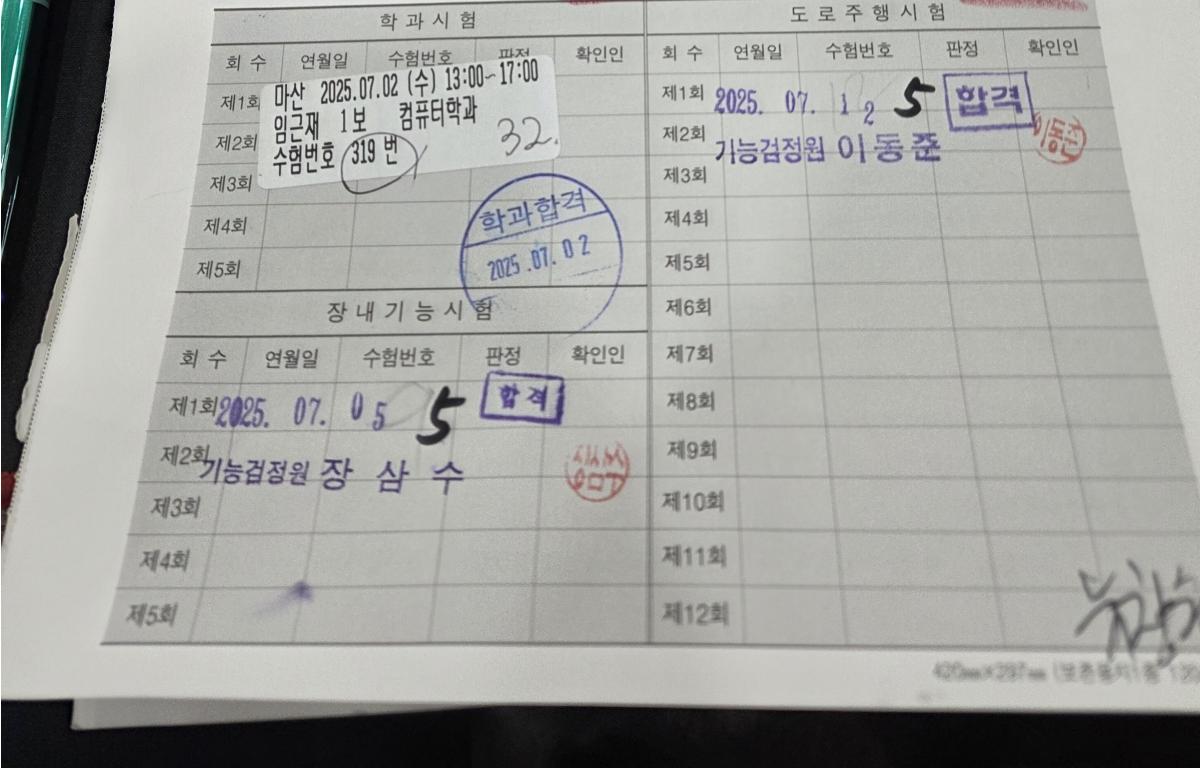 학과시험
회 수 연월일 수험번호 판정 확인인
제1회
마산 2025.07.02 (수) 13:00~17:00
임근재 1보 컴퓨터학과
수험번호 319 번
32.
제2회
제3회
제4회
제5회
학과합격
2025.07.02
장내기능시험
회 수 연월일 수험번호 판정 확인인
제1회 2025. 07. 05 5 합격
제2회 기능검정원 장삼수
제3회
제4회
제5회
도로주행시험
회 수 연월일 수험번호 판정 확인인
제1회 2025. 07. 12 5 합격
제2회 기능검정원 이동준 이동준
제3회
제4회
제5회
제6회
제7회
제8회
제9회
제10회
제11회
제12회
420㎜×297㎜